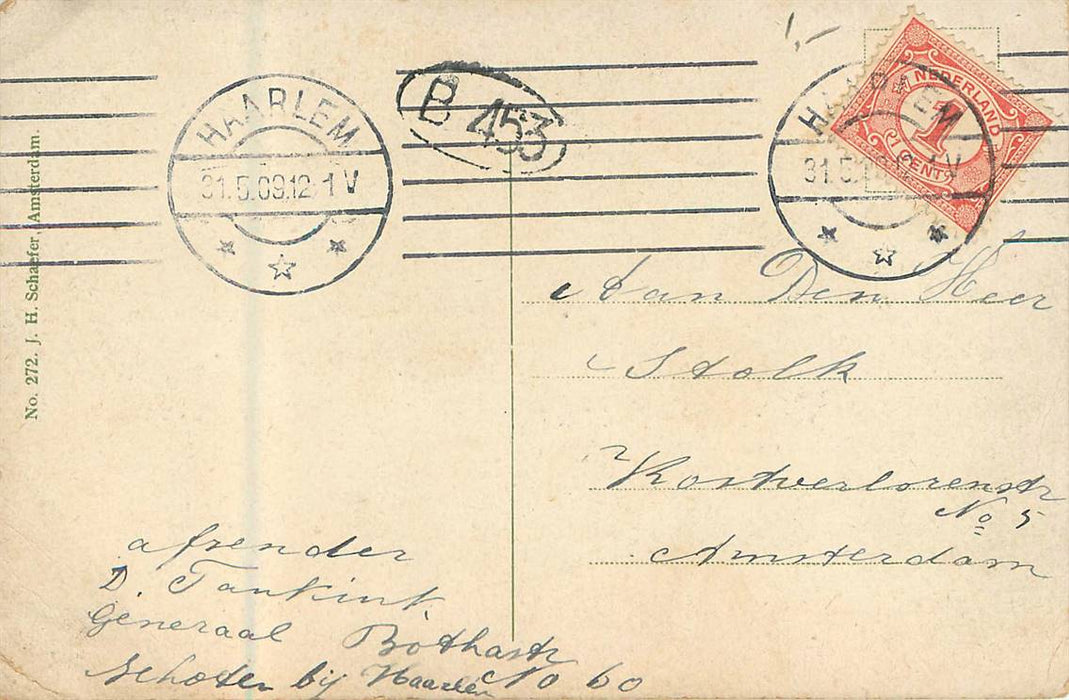 HAARLEM
31.5.09.12-1 V
B 453
HAARLEM
31.5.1 V
NEDERLAND
1
1 CENT
No. 272. J. H. Schaefer, Amsterdam.
Aan Den Heer
Stolk
Kostverlorenstr
No 5
Amsterdam
afsender
D. Tankink.
Generaal Bothastr
Schoten bij Haarlem No 60